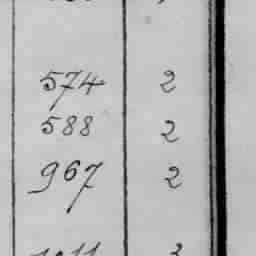 574 2
588 2
967 2